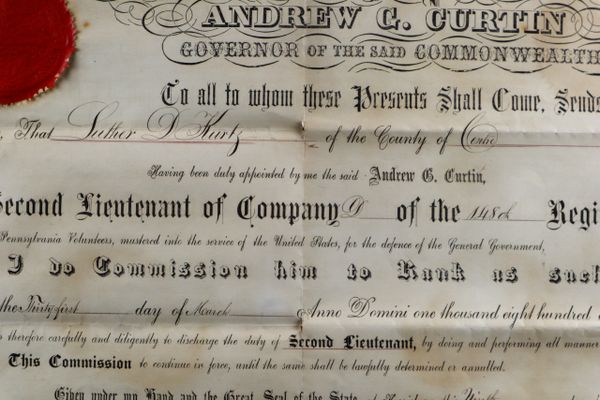 ANDREW G. CURTIN
GOVERNOR OF THE SAID COMMONWEALTH
To all to whom these Presents Shall Come, Sends
That Luther D Kurtz of the County of Centre
Having been duly appointed by me the said Andrew G. Curtin,
Second Lieutenant of Company D of the 148th Regi
Pennsylvania Volunteers, mustered into the service of the United States, for the defence of the General Government,
I do Commission him to Rank as such
the Thirty first day of March Anno Domini one thousand eight hundred
therefore carefully and diligently to discharge the duty of Second Lieutenant, by doing and performing all manner
This Commission to continue in force, until the same shall be lawfully determined or annulled.
Given under my Hand and the Great Seal of the State,